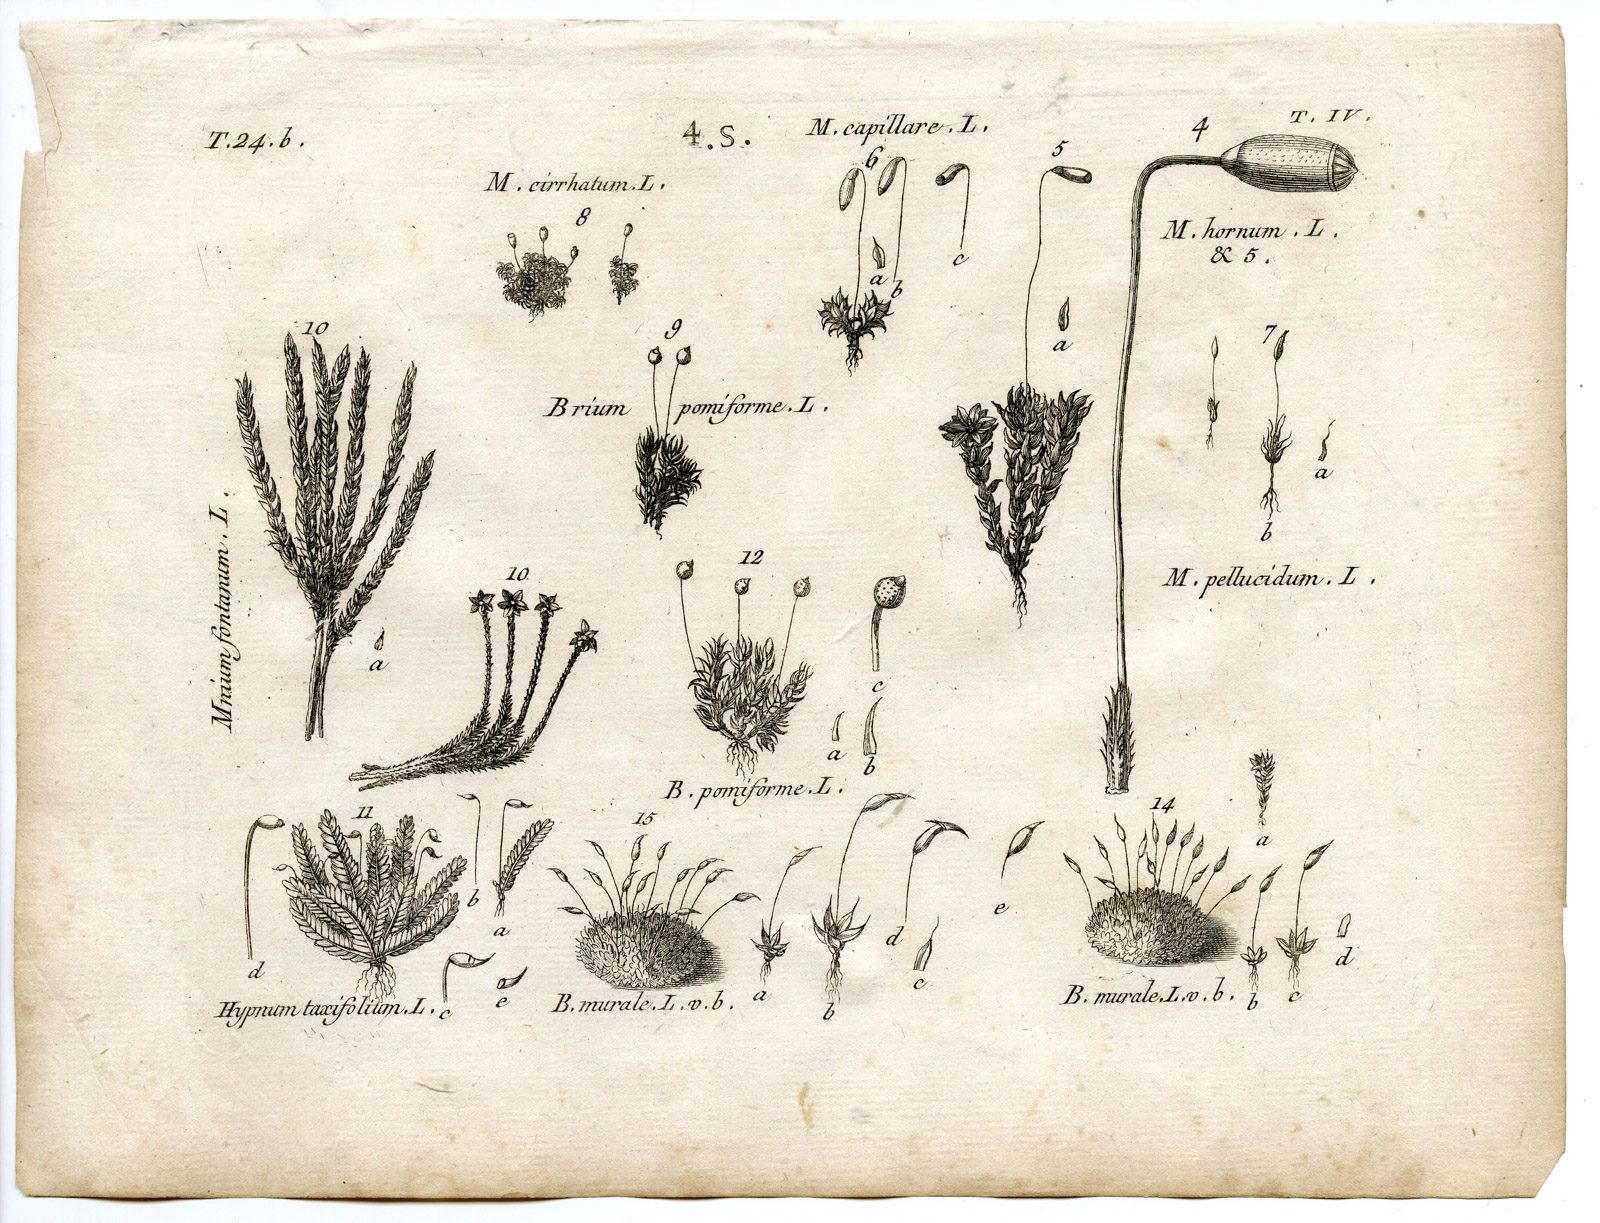 T.24.b.
4.S.
M. capillare. L.
T. IV.
4
5
6
M. cirrhatum. L.
8
M. hornum. L.
& 5.
a
b
c
a
10
9
7
Brium pomiforme. L.
a
b
Mnium fontanum. L.
10
12
M. pellucidum. L.
a
c
a
b
B. pomiforme. L.
11
15
14
a
b
a
d
c
e
Hypnum taxifolium. L.
a
b
d
c
e
B. murale. L. v. b.
b
c
d
B. murale. L. v. b.